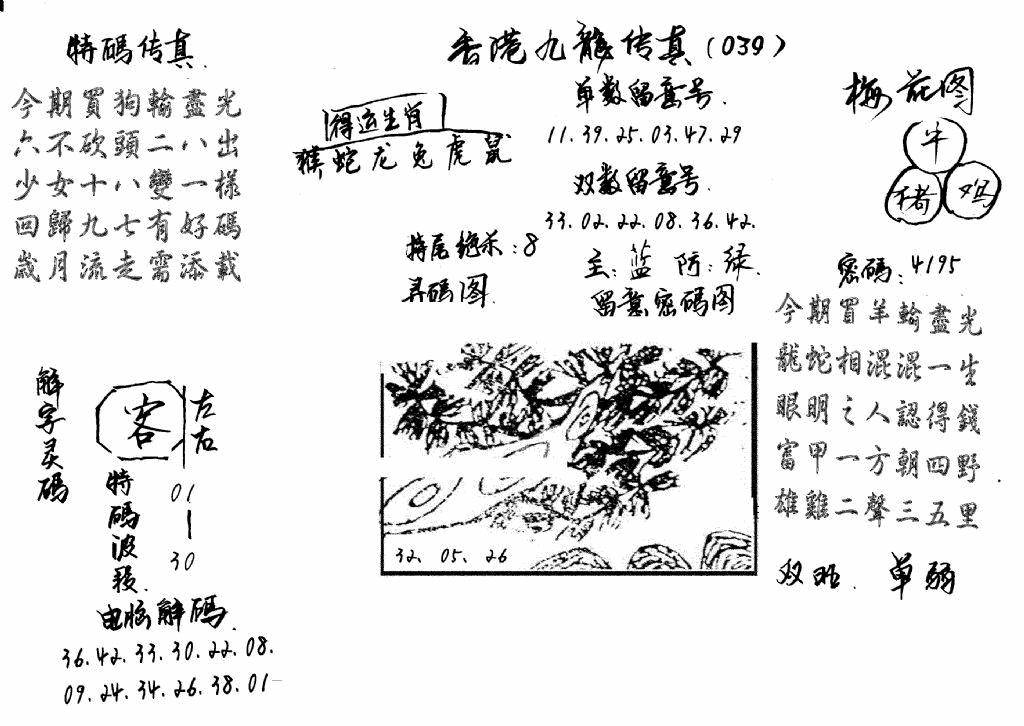 香港九龍传真（039）
特碼传真
今期買狗輸盡光
六不砍頭二八出
少女十八變一樣
回歸九七有好碼
歲月流走需添載
得运生肖
猴蛇龙兔虎鼠
单数留意号.
11.39.25.03.47.29
双数留意号.
33.02.22.08.36.42.
特尾绝杀:8
主:蓝 防:绿.
寻碼图.
留意密碼图
梅花图
牛
猪
鸡
密碼:4195
今期買羊輸盡光
龍蛇相混混一生
眼明之人認得錢
富甲一方朝四野
雄雞二聲三五里
双旺. 单弱
解字灵碼
客
左右
特碼波段.
01
30
32. 05. 26
电脑解碼.
36.42.33.30.22.08.
09.24.34.26.38.01